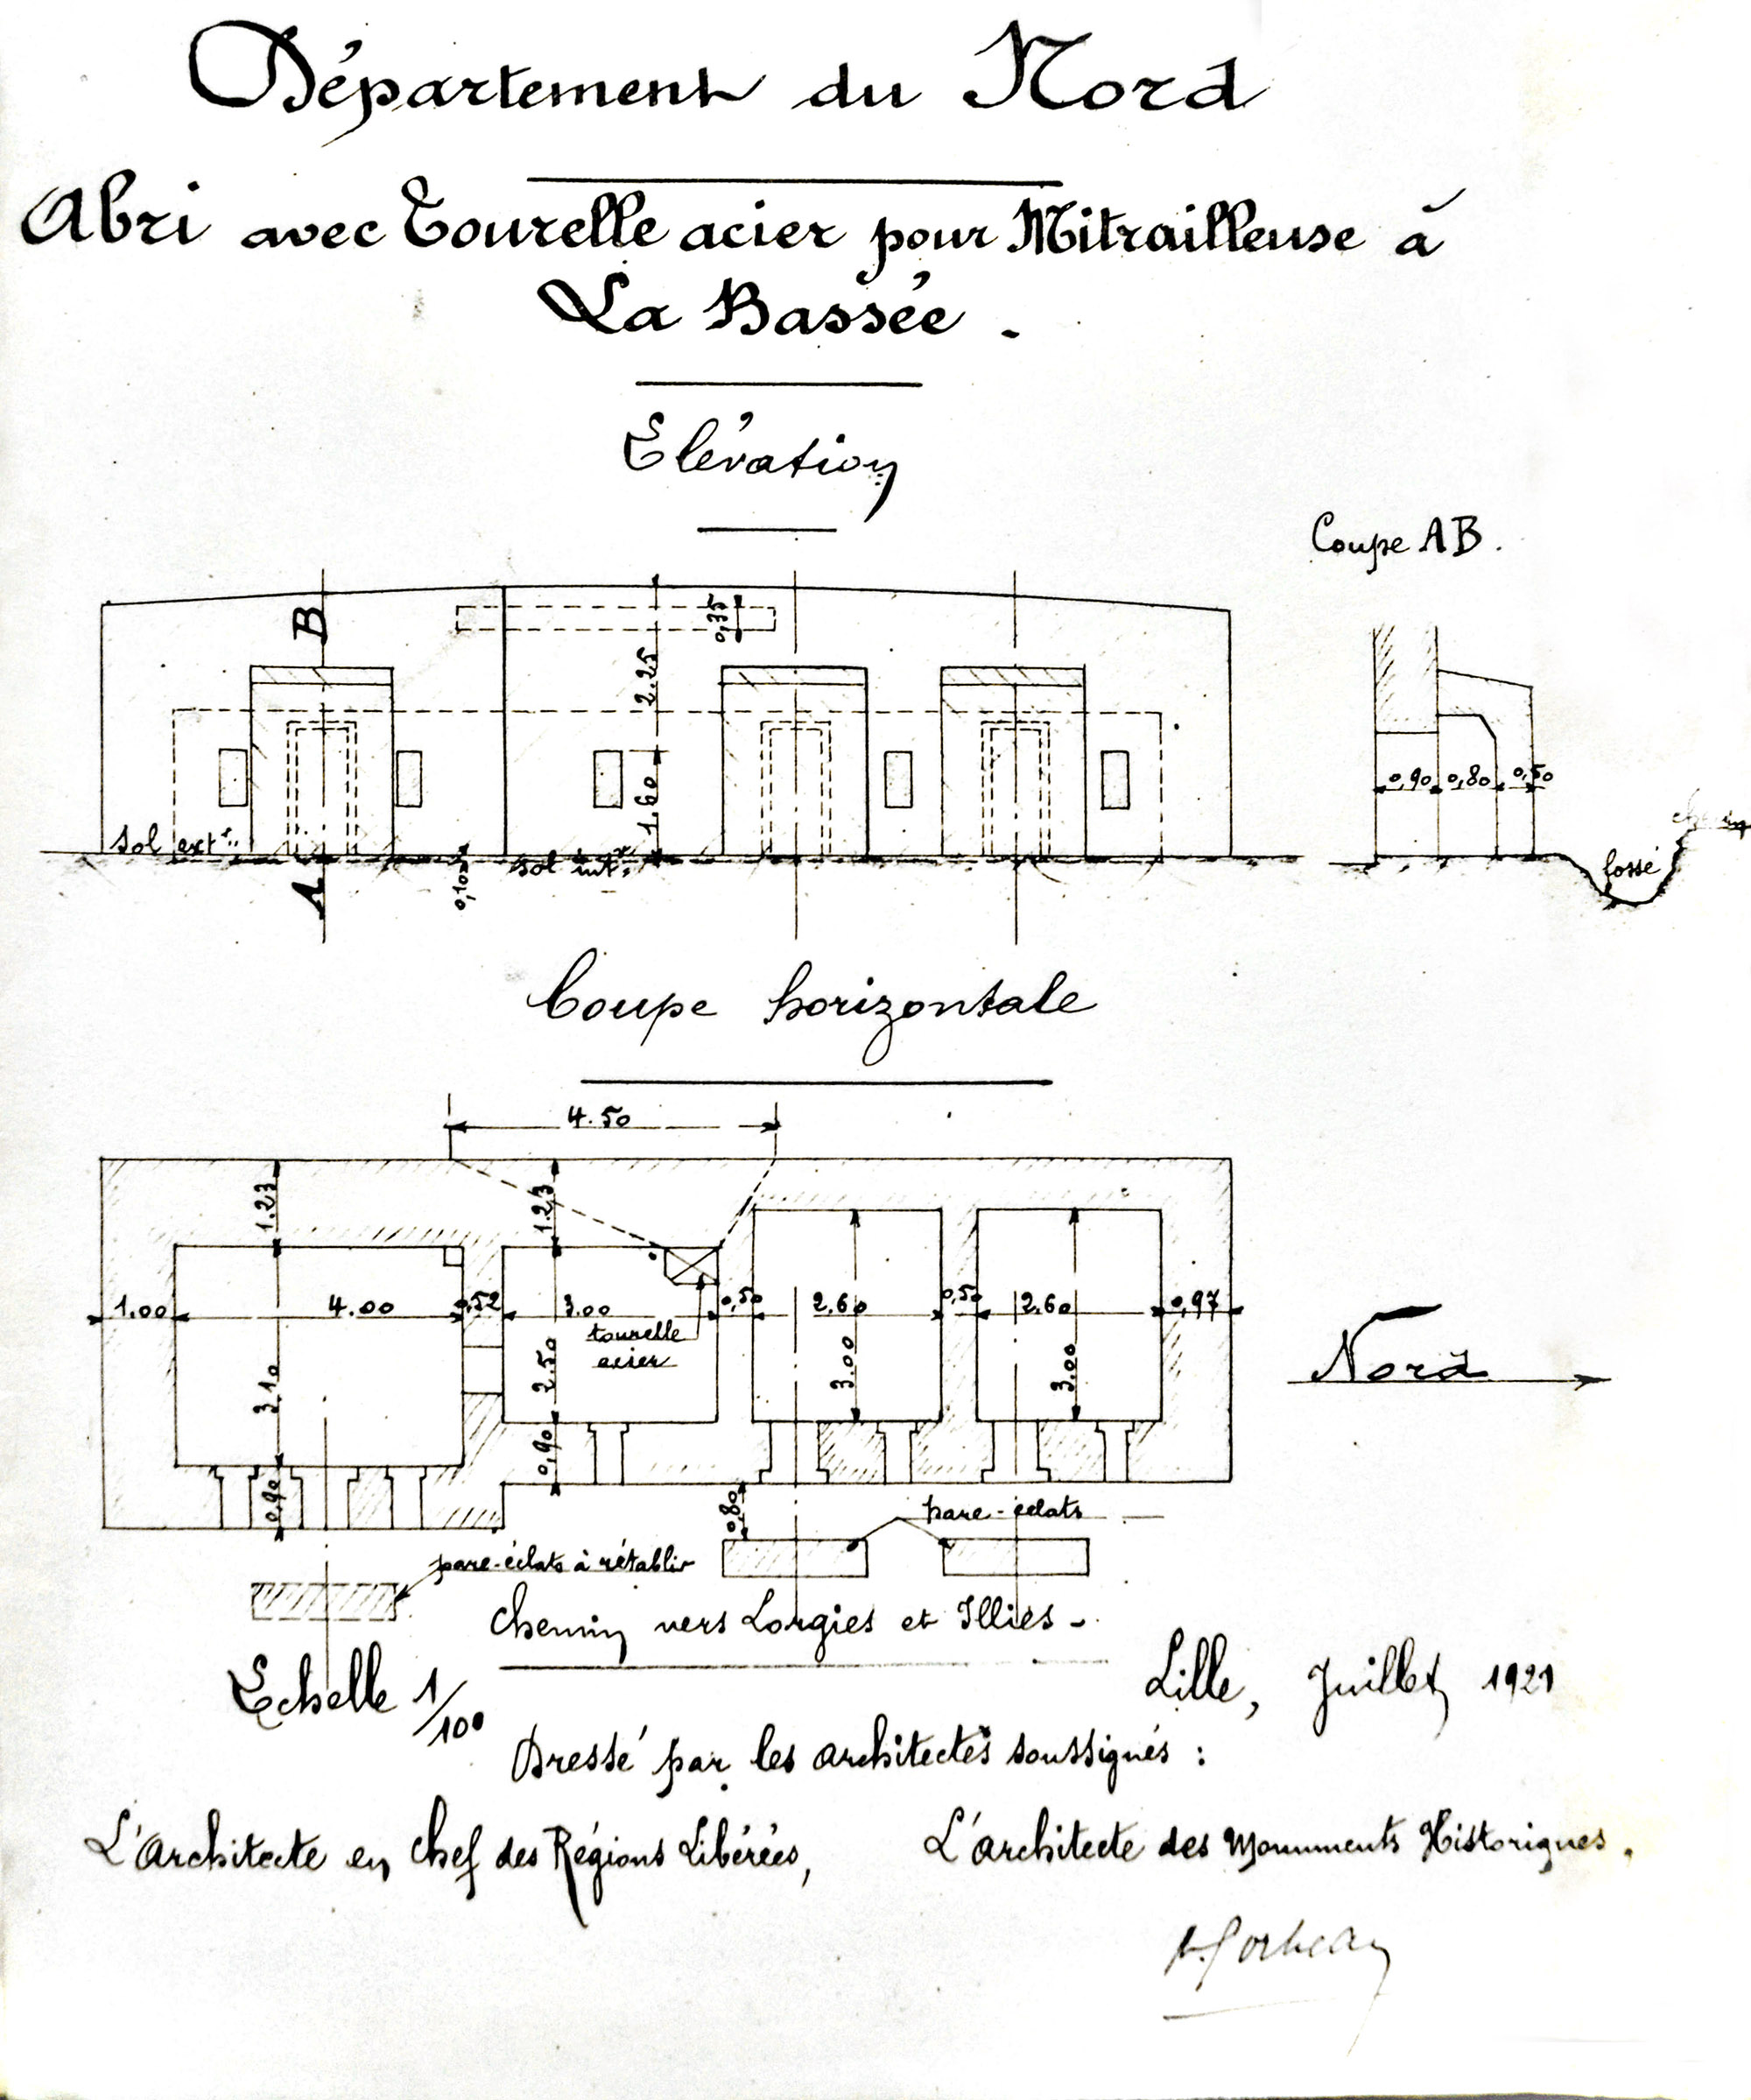 Département du Nord
Abri avec Tourelle acier pour Mitrailleuse à
La Bassée.
Elévation
Coupe AB.
B
0,35
2.25
1.60
0,90 0,80 0,50
sol ext.r
sol int.r
fossé
A
0,10
Coupe horizontale
4.50
1.23
1.23
1.00 4.00 0,52 3.00 0,50 2,60 0,50 2.60 0,97
tourelle
acier
3.10
2.50
3.00
3.00
Nord
0,90
0,90
0,80
pare-éclats
pare-éclats à rétablir
Chemin vers Lorgies et Illies -
Echelle 1/100
Lille, Juillet 1921
Dressé par les architectes soussignés :
L'Architecte en chef des Régions Libérées,
L'architecte des Monuments Historiques.